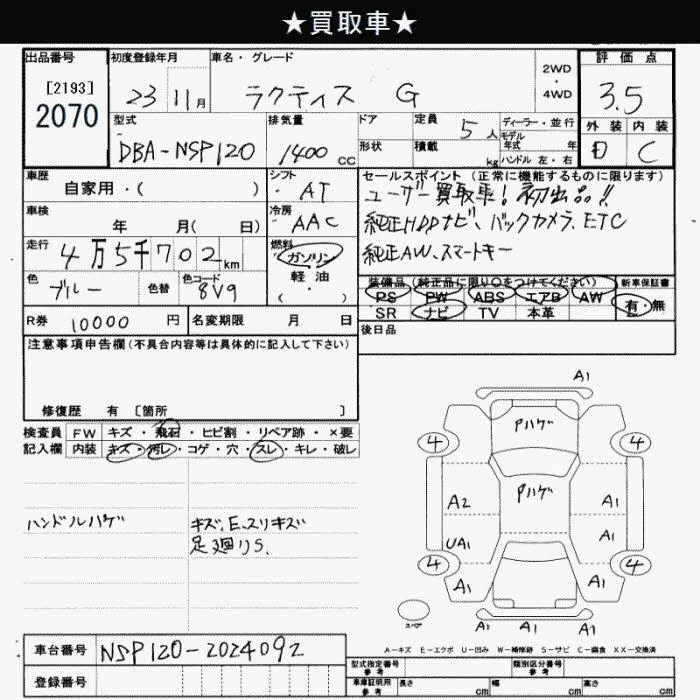 ★買取車★
出品番号
[2193]
2070
初度登録年月
23 11月
車名・グレード
ラクティス G
2WD
・
4WD
評価点
3.5
外装 内装
D C
型式
DBA-NSP120
排気量
1400 CC
ドア
形状
定員
5人
積載
kg
ディーラー・並行
モデル
年式 年
ハンドル 左・右
車歴
自家用・( )
シフト
AT
車検
年 月( 日)
冷房
AAC
走行
4万5千702km
燃料
ガソリン
軽・油
( )
色
ブルー
色替
色コード
8V9
R券 10000 円
名変期限 月 日
セールスポイント(正常に機能するものに限ります)
ユーザー買取車!初出品!!
純正HDDナビ、バックカメラ、ETC
純正AW、スマートキー
装備品(純正品に限り○をつけてください)
PS PW ABS エアB AW
SR ナビ TV 本革
新車保証書
有・無
後日品
注意事項申告欄(不具合内容等は具体的に記入して下さい)
修復歴 有 [箇所 ]
検査員
記入欄
FW キズ・飛石・ヒビ割・リペア跡・×要
内装 キズ・汚レ・コゲ・穴・スレ・キレ・破レ
ハンドルハゲ
キズ、E、スリキズ
足廻りS、
A1
Pハゲ
4 4
Pハゲ
A2 A1
UA1 A1
4 4
A1 A1
スペア
A1 A1 A1
A-キズ E-エクボ U-凹み W-補修跡 S-サビ C-腐食 XX-交換済
車台番号 NSP120-2024092
登録番号
型式指定番号
参考
類別区分番号
参考
車庫証明用
参考
長さ cm
幅 cm
高さ cm